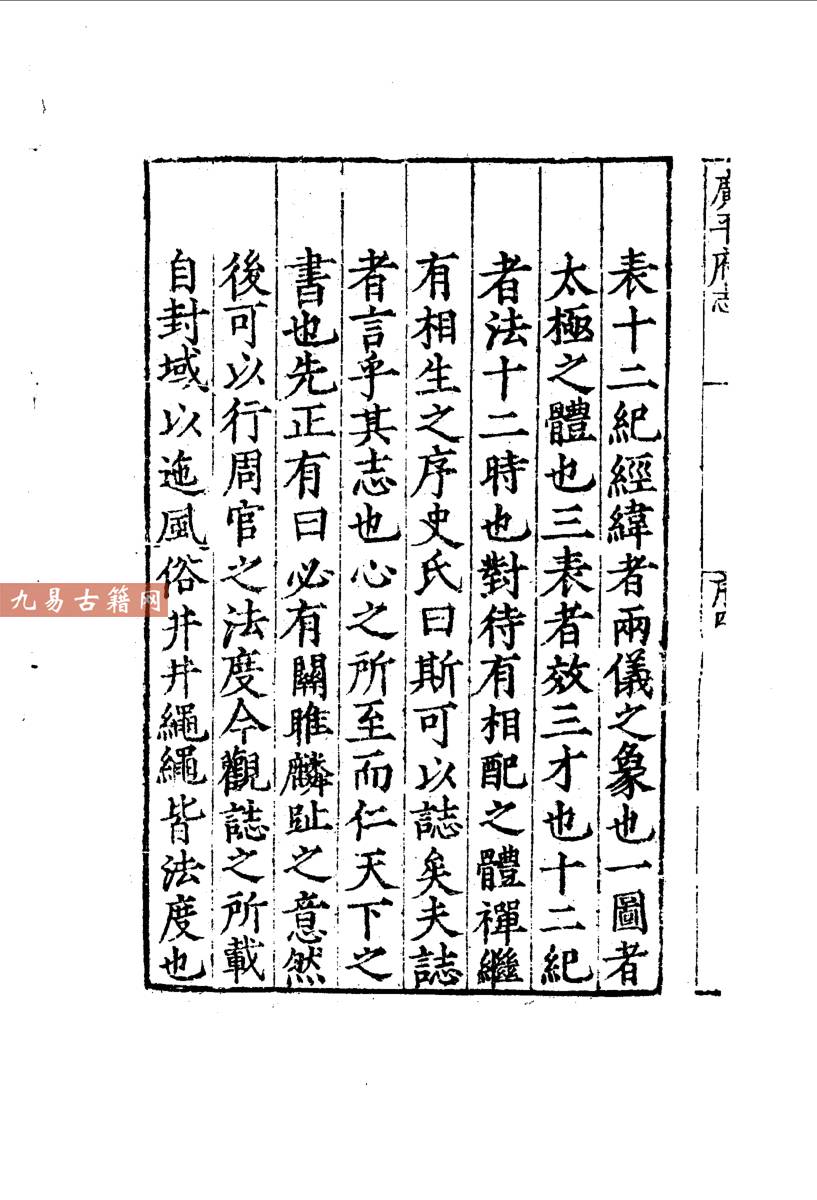 廣平府志
序四
表十二紀經緯者兩儀之象也一圖者
太極之體也三表者效三才也十二紀
者法十二時也對待有相配之體禪繼
有相生之序史氏曰斯可以誌矣夫誌
者言乎其志也心之所至而仁天下之
書也先正有曰必有關雎麟趾之意然
後可以行周官之法度今觀誌之所載
自封域以迄風俗井井繩繩皆法度也
九易古籍网